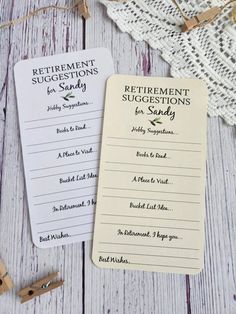 RETIREMENT
SUGGESTIONS
for Sandy
Hobby Suggestions...
Books to Read...
A Place to Visit...
Bucket List Idea...
In Retirement, I hope
Best Wishes,
RETIREMENT
SUGGESTIONS
for Sandy
Hobby Suggestions...
Books to Read...
A Place to Visit...
Bucket List Idea...
In Retirement, I hope you...
Best Wishes,